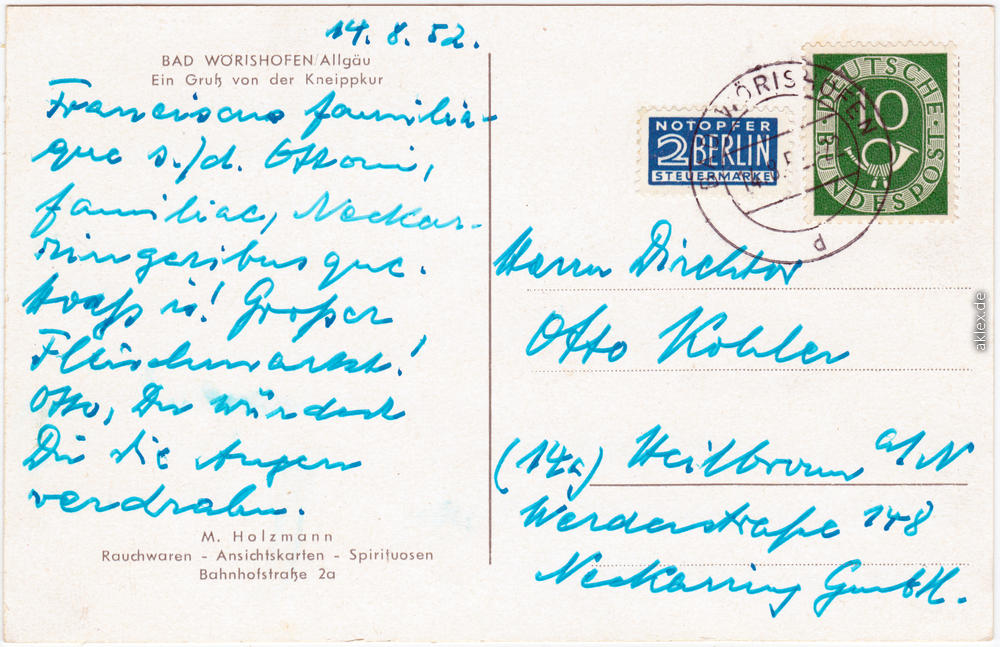 14. 8. 52.
BAD WÖRISHOFEN/Allgäu
Ein Gruß von der Kneippkur
Franciscus familia-
que s./d. Ottoni,
familiae, Neckar-
ringeribusque.
Großer
Fleischmarkt!
Otto, Du würdest
Dir die Augen
verdrehn.
M. Holzmann
Rauchwaren - Ansichtskarten - Spirituosen
Bahnhofstraße 2a
NOTOPFER
2 BERLIN
STEUERMARKE
DEUTSCHE BUNDESPOST
10
BAD WÖRISHOFEN
d
Herrn Direktor
Otto Kohler
(14a) Heilbronn a/N
Werderstraße 148
Neckarring GmbH.
aklex.de